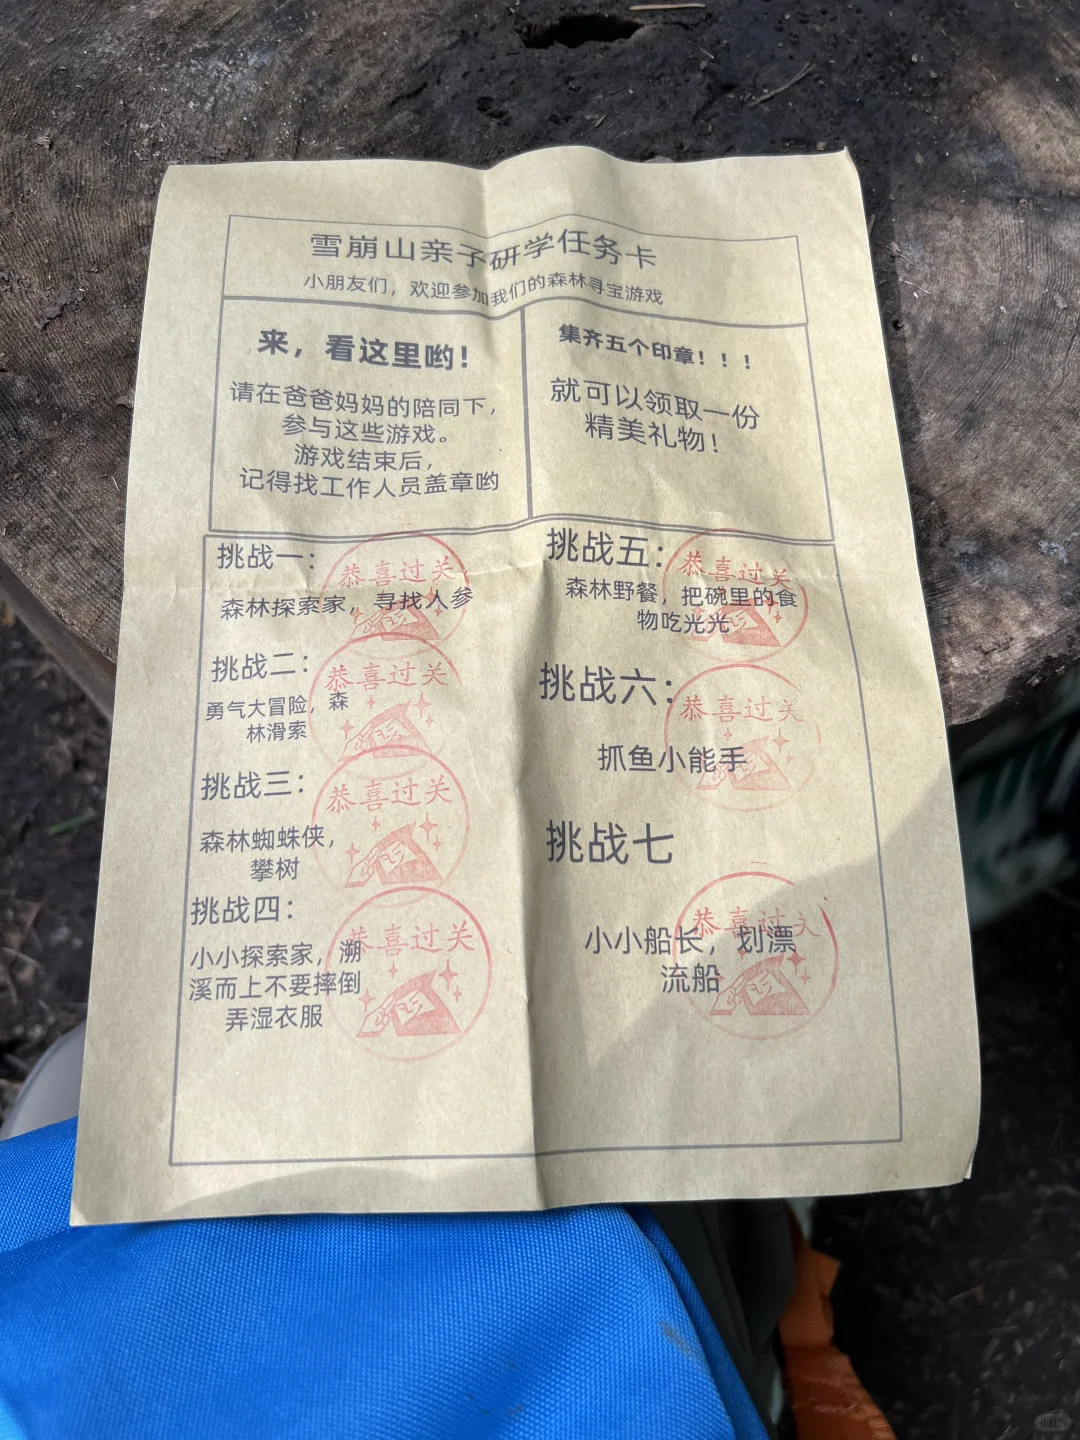 雪崩山亲子研学任务卡
小朋友们，欢迎参加我们的森林寻宝游戏
来，看这里哟！
请在爸爸妈妈的陪同下，
参与这些游戏。
游戏结束后，
记得找工作人员盖章哟
集齐五个印章！！！
就可以领取一份
精美礼物！
挑战一：
恭喜过关
森林探索家，寻找人参
挑战二：
恭喜过关
勇气大冒险，森
林滑索
挑战三：
恭喜过关
森林蜘蛛侠，
攀树
挑战四：
恭喜过关
小小探索家，溯
溪而上不要摔倒
弄湿衣服
挑战五：
恭喜过关
森林野餐，把碗里的食
物吃光光
挑战六：
恭喜过关
抓鱼小能手
挑战七
恭喜过关
小小船长，划漂
流船